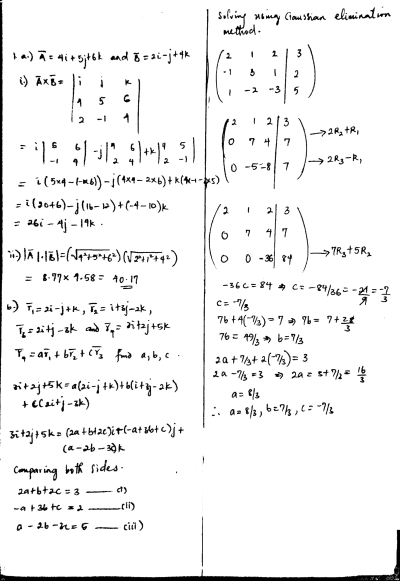 1.a.) A̅ = 4i+5j+6k and B̅ = 2i-j+4k
i) A̅xB̅ = | i j k |
| 4 5 6 |
| 2 -1 4 |
= i | 5 6 | -j | 4 6 | +k | 4 5 |
| -1 4 | | 2 4 | | 2 -1 |
= i(5x4-(-1x6))-j(4x4-2x6)+k(4x-1-2x5)
= i(20+6)-j(16-12)+(-4-10)k
= 26i-4j-14k.
ii) |A̅|.|B̅| = (√4²+5²+6²)(√2²+1²+4²)
= 8.77 x 4.58 = 40.17
b.) r̅₁ = 2i-j+k, r̅₂ = i+3j-2k,
r̅₃ = 2i+j-3k and r̅₄ = 3i+2j+5k
r̅₄ = ar̅₁+br̅₂+cr̅₃ find a, b, c.
3i+2j+5k = a(2i-j+k)+b(i+3j-2k)
+c(2i+j-3k)
3i+2j+5k = (2a+b+2c)i+(-a+3b+c)j+
(a-2b-3c)k
Comparing both sides.
2a+b+2c = 3 —— (i)
-a+3b+c = 2 —— (ii)
a-2b-3c = 5 —— (iii)
Solving using Gaussian elimination
method.
( 2 1 2 | 3 )
( -1 3 1 | 2 )
( 1 -2 -3 | 5 )
( 2 1 2 | 3 )
( 0 7 4 | 7 ) → 2R₂+R₁
( 0 -5 -8 | 7 ) → 2R₃-R₁
( 2 1 2 | 3 )
( 0 7 4 | 7 )
( 0 0 -36 | 84 ) → 7R₃+5R₂
-36c = 84 ⇒ c = -84/36 = -21/9 = -7/3
c = -7/3
7b+4(-7/3) = 7 ⇒ 7b = 7+28/3
7b = 49/3 ⇒ b = 7/3
2a+7/3+2(-7/3) = 3
2a-7/3 = 3 ⇒ 2a = 3+7/3 = 16/3
a = 8/3
∴ a = 8/3, b = 7/3, c = -7/3